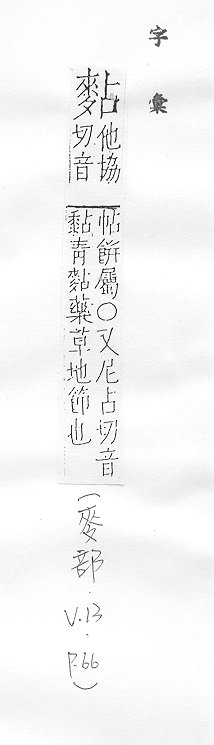 字彙
⿰麥占
他協
切音
帖餅屬○又尼占切音
黏青⿰麥占藥草地節也
(麥部·V.13·P.66)